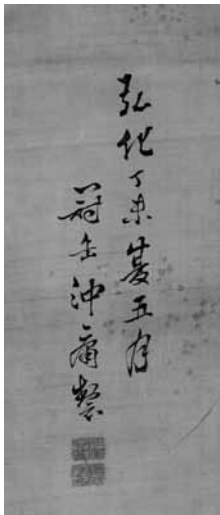 弘化丁未夏五月
冠岳沖庸製